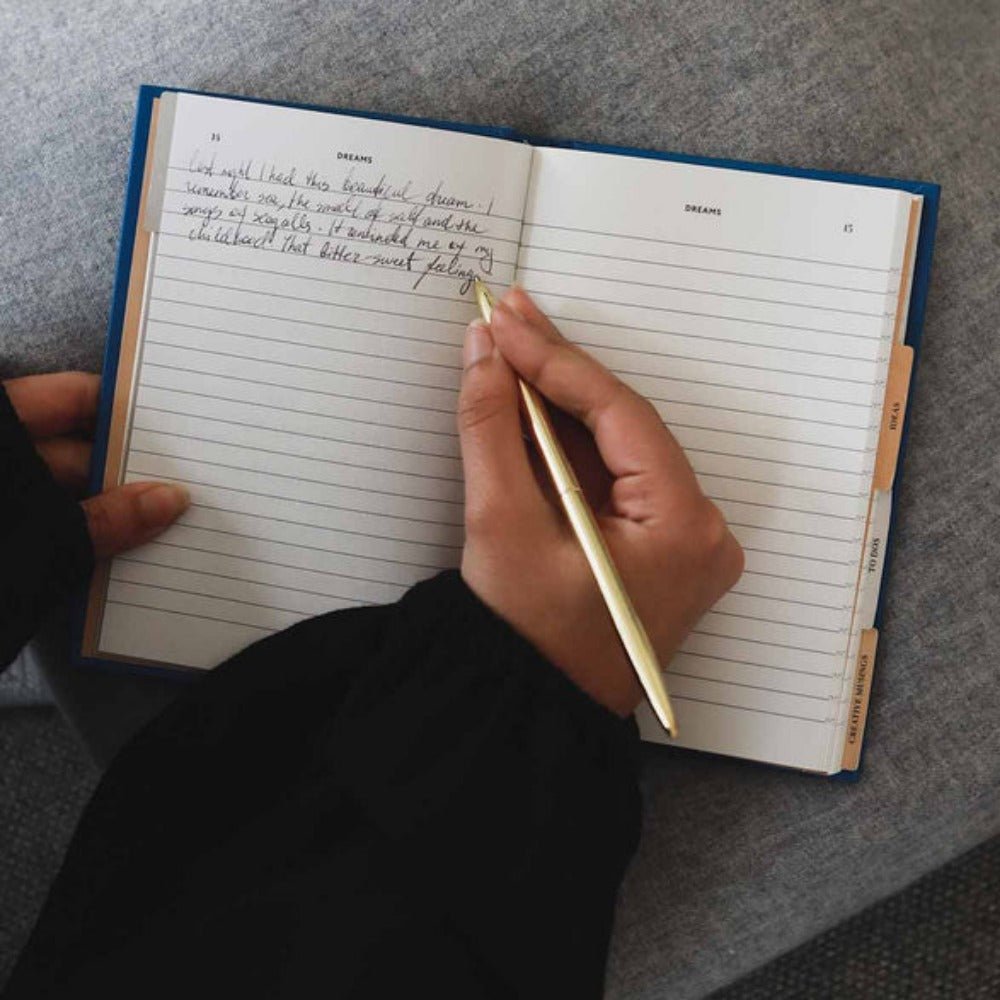 35
DREAMS
Last night I had this beautiful dream. I
remember sea, the smell of salt and the
songs of seagalls. It reminded me of my
childhood. That bitter-sweet feeling
DREAMS
15
IDEAS
TO DOS
CREATIVE MUSINGS